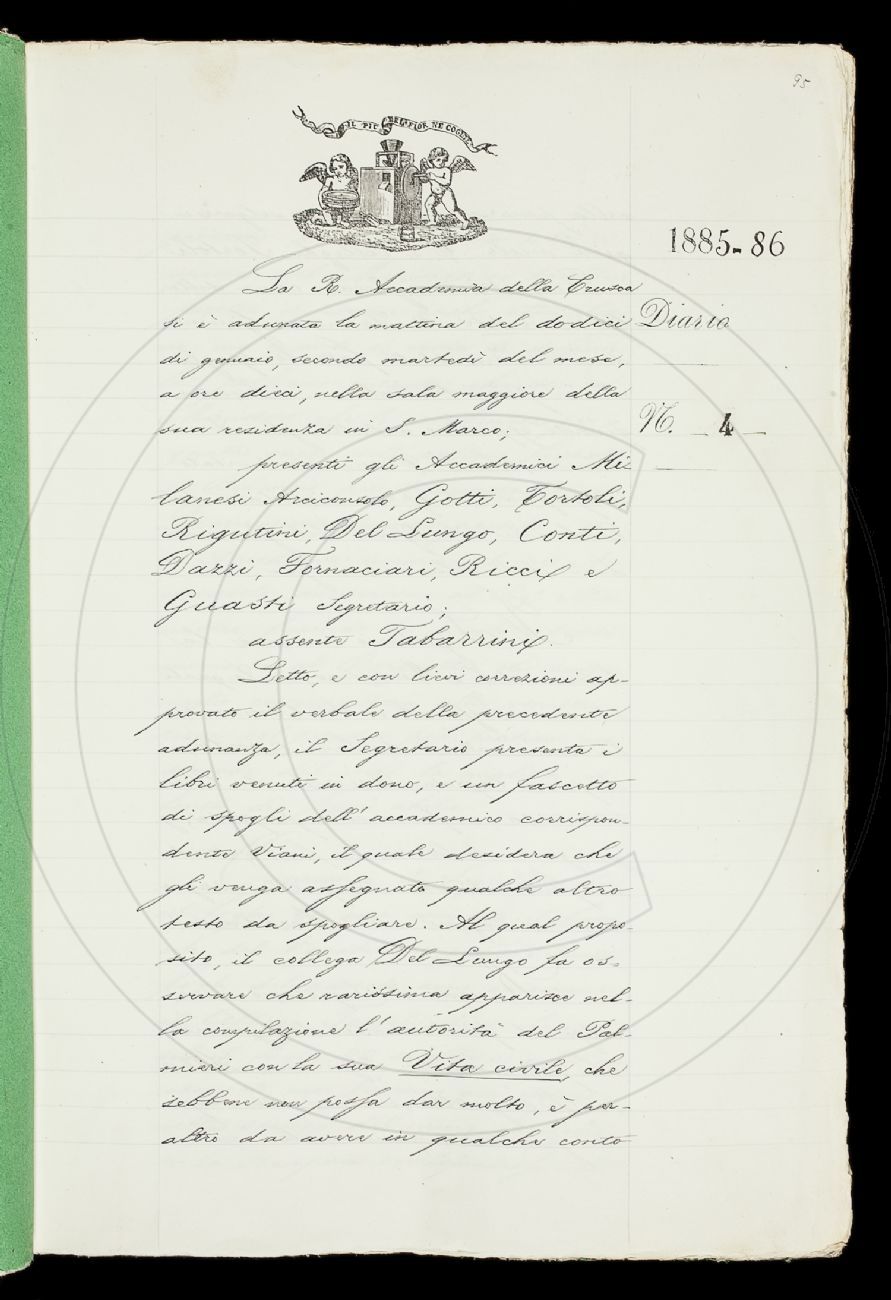 95
IL PIÙ BEL FIOR NE COGLIE
1885-86
La R. Accademia della Crusca
si è adunata la mattina del dodici
Diario
di gennaio, secondo martedì del mese,
a ore dieci, nella sala maggiore della
sua residenza in S. Marco;
N. 4
presenti gli Accademici Mi-
lanesi Arciconsolo, Gotti, Tortoli,
Rigutini, Del Lungo, Conti,
Dazzi, Fornaciari, Ricci e
Guasti Segretario;
assente Tabarrini.
Letto, e con lievi correzioni ap-
provato il verbale della precedente
adunanza, il Segretario presenta i
libri venuti in dono, e un fascetto
di spogli dell' accademico corrispon-
dente Viani, il quale desidera che
gli venga assegnato qualche altro
testo da spogliare. Al qual propo-
sito, il collega Del Lungo fa os-
servare che rarissima apparisce nel-
la compilazione l' autorità del Pal-
mieri con la sua Vita civile, che
sebbene non possa dar molto, è per-
altro da avere in qualche conto